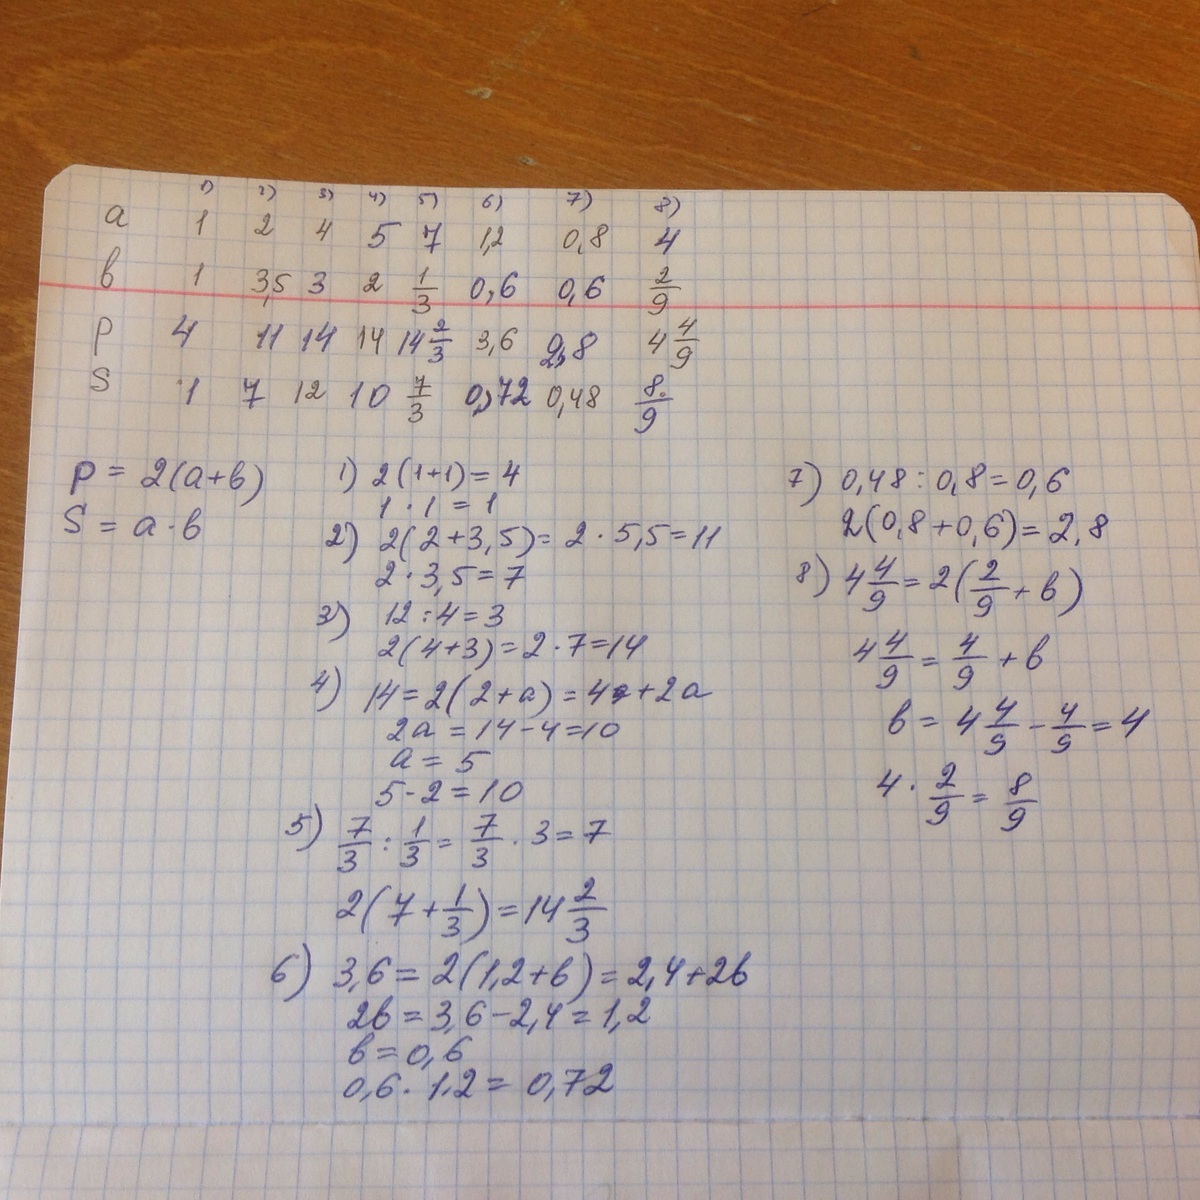 1) 2) 3) 4) 5) 6) 7) 8)
a 1 2 4 5 7 1,2 0,8 4
в 1 3,5 3 2 1/3 0,6 0,6 2/9
p 4 11 14 14 14 2/3 3,6 2,8 4 4/9
S 1 7 12 10 7/3 0,72 0,48 8/9
p = 2(a+в)
S = a·в
1) 2(1+1)=4
1·1=1
2) 2(2+3,5)=2·5,5=11
2·3,5=7
3) 12:4=3
2(4+3)=2·7=14
4) 14=2(2+a)=4+2a
2a=14-4=10
a=5
5-2=10
5) 7/3:1/3=7/3·3=7
2(7+1/3)=14 2/3
6) 3,6=2(1,2+в)=2,4+2в
2в=3,6-2,4=1,2
в=0,6
0,6·1,2=0,72
7) 0,48:0,8=0,6
2(0,8+0,6)=2,8
8) 4 4/9=2(2/9+в)
4 4/9=4/9+в
в=4 4/9-4/9=4
4·2/9=8/9